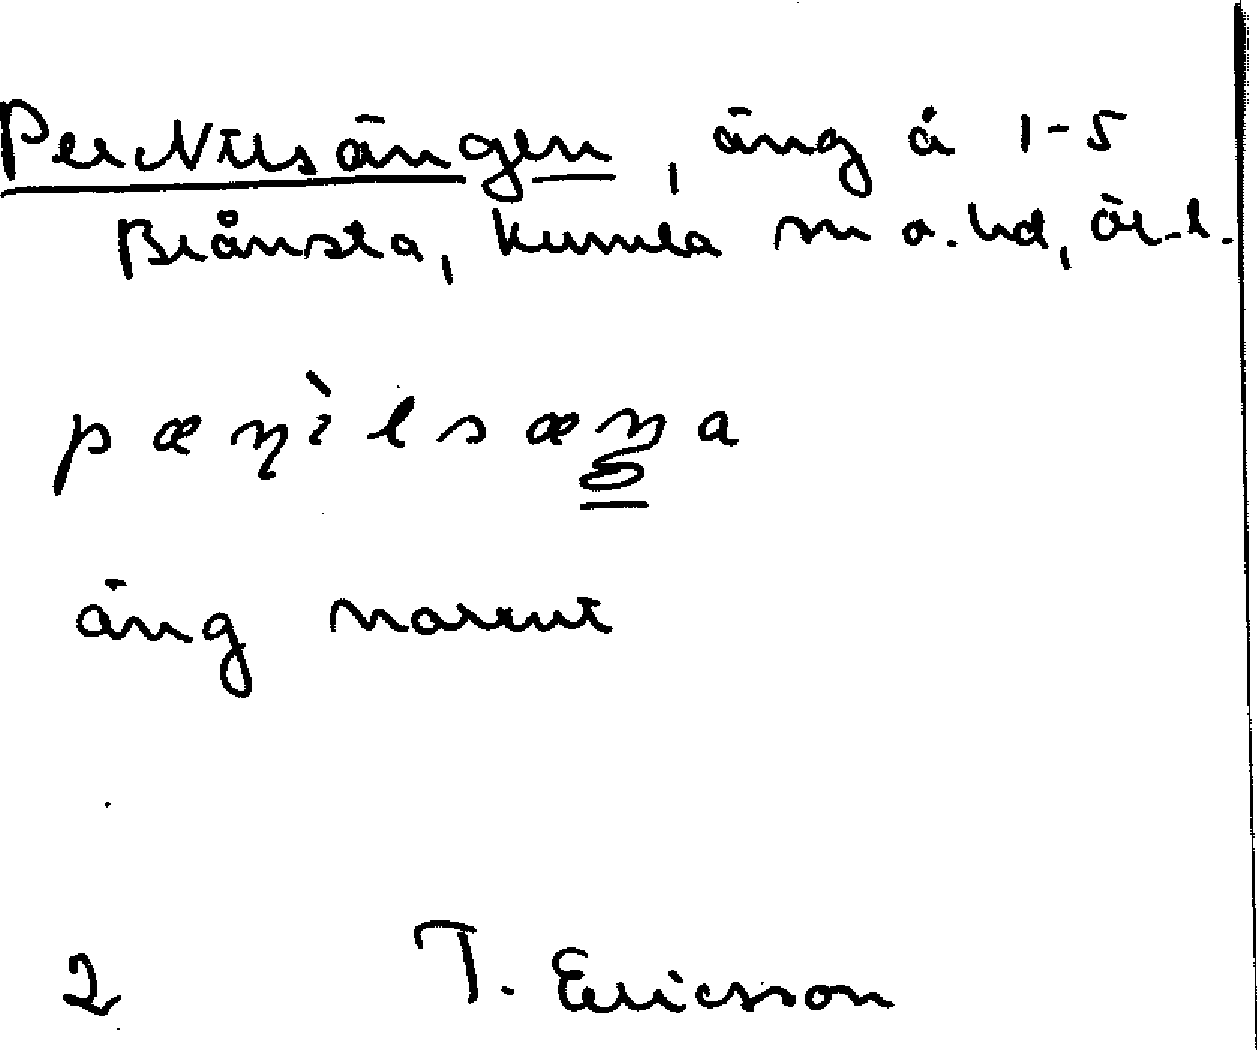 Per Nilsängen, äng å 1-5
Brånsta, Kumla sn o. hd, Ör. l.
pæṇìlsæŋa
äng norrut
2 T. Ericsson